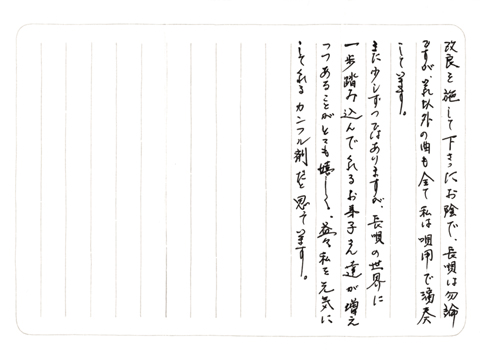 改良を施して下さったお陰で、長唄は勿論
ですが、それ以外の曲も全て私は唄用で演奏
しています。
まだ少しずつではありますが、長唄の世界に
一歩踏み込んでくれるお弟子さん達が増え
つつあることがとても嬉しく、益々私を元気に
してくれるカンフル剤だと思っています。